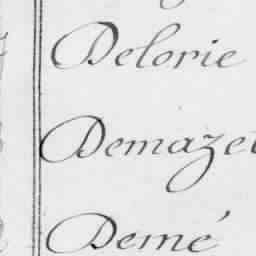 Delorie
Demazet
Demé